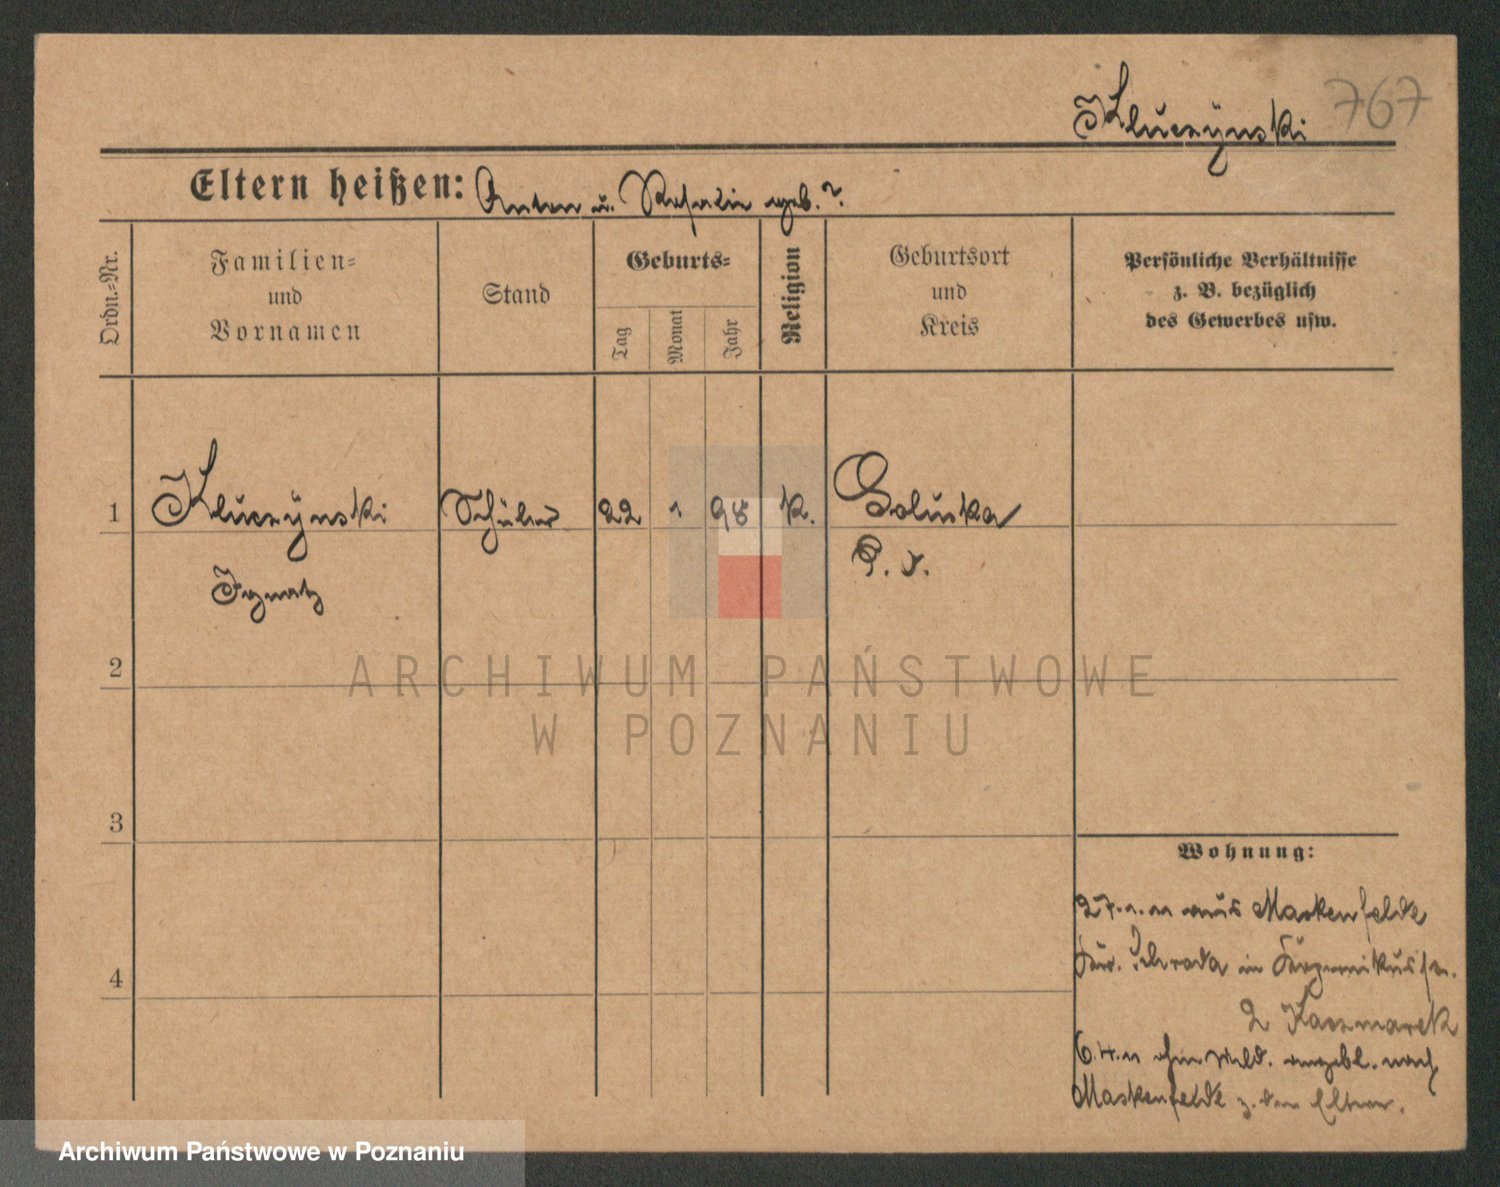 767
Kluczynski
Eltern heißen: Anton u. geb. ?
Ordn.=Nr.
Familien=
und
Vornamen
Stand
Geburts=
Tag
Monat
Jahr
Religion
Geburtsort
und
Kreis
Persönliche Verhältnisse
z. B. bezüglich
des Gewerbes usw.
1 Kluczynski Schüler 22 1 98 k. Soluska
Ignatz P. J.
2
3
4
Wohnung:
27.1.11 aus Maskenfelde
Schroda in
2 Kaczmarek
6.4.11 ohne Meld. angebl. nach
Maskenfelde z. den Eltern.
ARCHIWUM PAŃSTWOWE
W POZNANIU
Archiwum Państwowe w Poznaniu